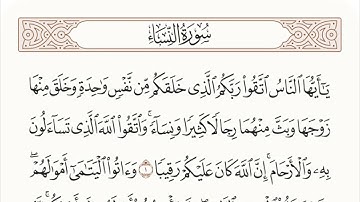 سُورَةُ النِّسَاءِ
يَـٰٓأَيُّهَا ٱلنَّاسُ ٱتَّقُوا۟ رَبَّكُمُ ٱلَّذِى خَلَقَكُم مِّن نَّفْسٍ وَٰحِدَةٍ وَخَلَقَ مِنْهَا
زَوْجَهَا وَبَثَّ مِنْهُمَا رِجَالًا كَثِيرًا وَنِسَآءً ۚ وَٱتَّقُوا۟ ٱللَّهَ ٱلَّذِى تَسَآءَلُونَ
بِهِۦ وَٱلْأَرْحَامَ ۚ إِنَّ ٱللَّهَ كَانَ عَلَيْكُمْ رَقِيبًا ١ وَءَاتُوا۟ ٱلْيَتَـٰمَىٰٓ أَمْوَٰلَهُمْ ۖ